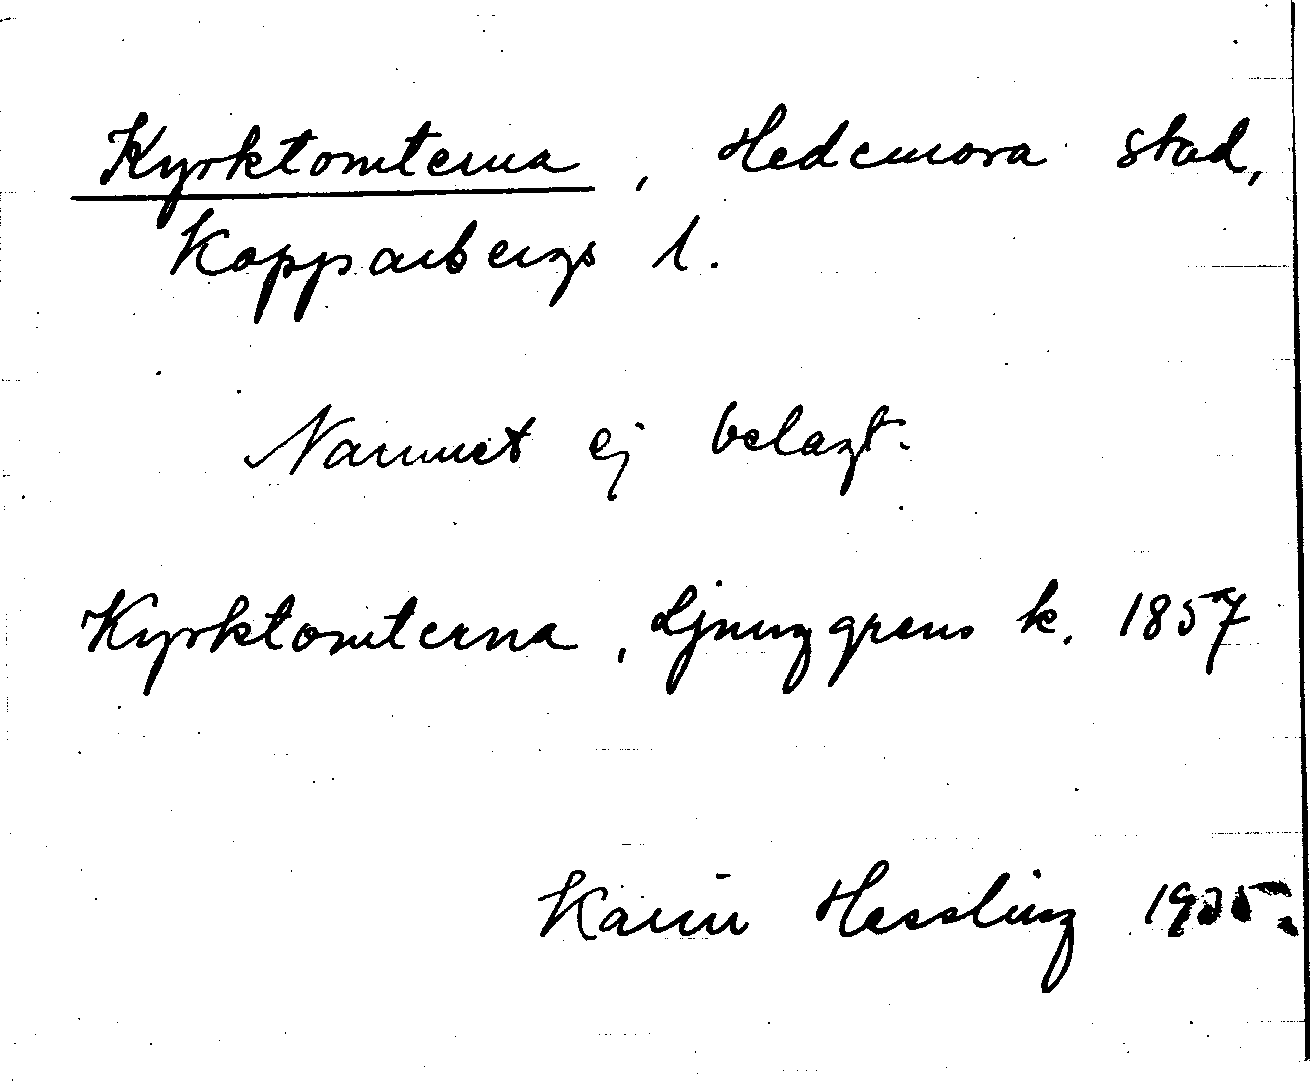 Kyrktomterna, Hedemora stad,
Kopparbergs l.
Namnet ej belagt.
Kyrktomterna, Ljunggrens k. 1857
Karin Hessling